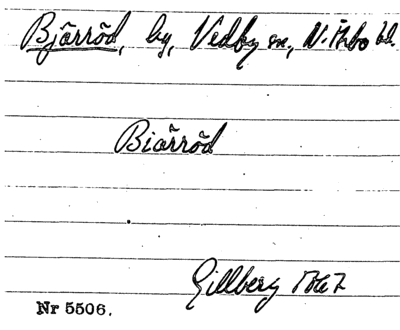 Bjärröd, by, Vedby sn, N. Åsbo hd.
Biärröd
Gillberg
Nr 5506.